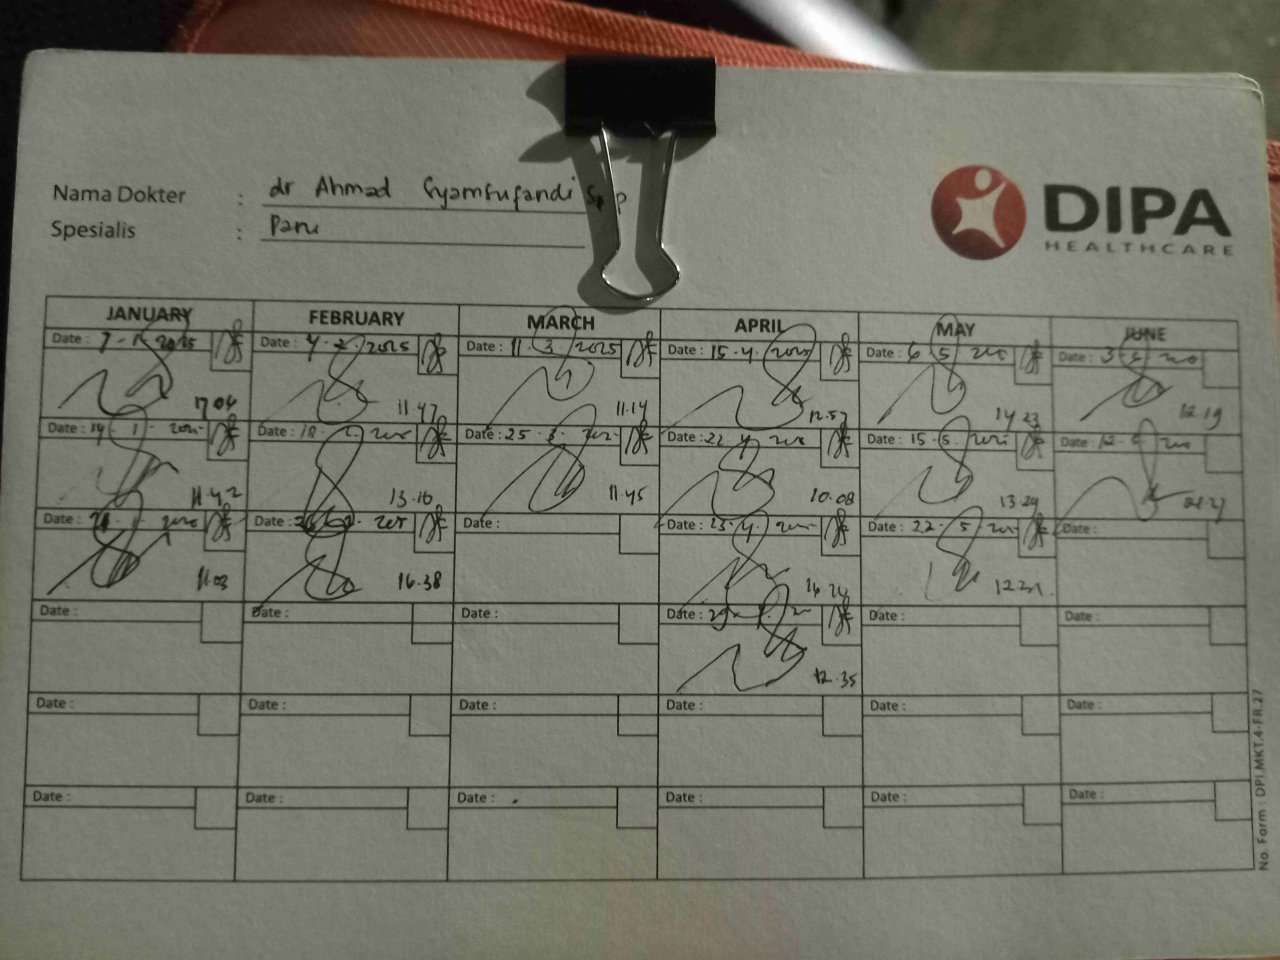 Nama Dokter : dr Ahmad
Spesialis : Paru
DIPA
HEALTHCARE
JANUARY FEBRUARY MARCH APRIL MAY JUNE
Date : 7-1-2025 Date : 4-2-2025 Date : 11-3-2025 Date : 15-4-2025 Date : 6 5 Date : 3
17.04 11.47 11.14 12.57 14.23 12.19
Date : 14-1- Date : 18-2- Date : 25-3- Date : 22-4 Date : 15-5- Date : 12-
11.42 13.16 11.45 10.08 13.29
Date : Date : Date : Date : 23-4 Date : 22-5 Date :
11.03 16.38 16.24
Date : Date : Date : Date : Date : Date :
12.35
Date : Date : Date : Date : Date : Date :
Date : Date : Date : Date : Date : Date :
No. Form : DPI.MKT.4-FR.27